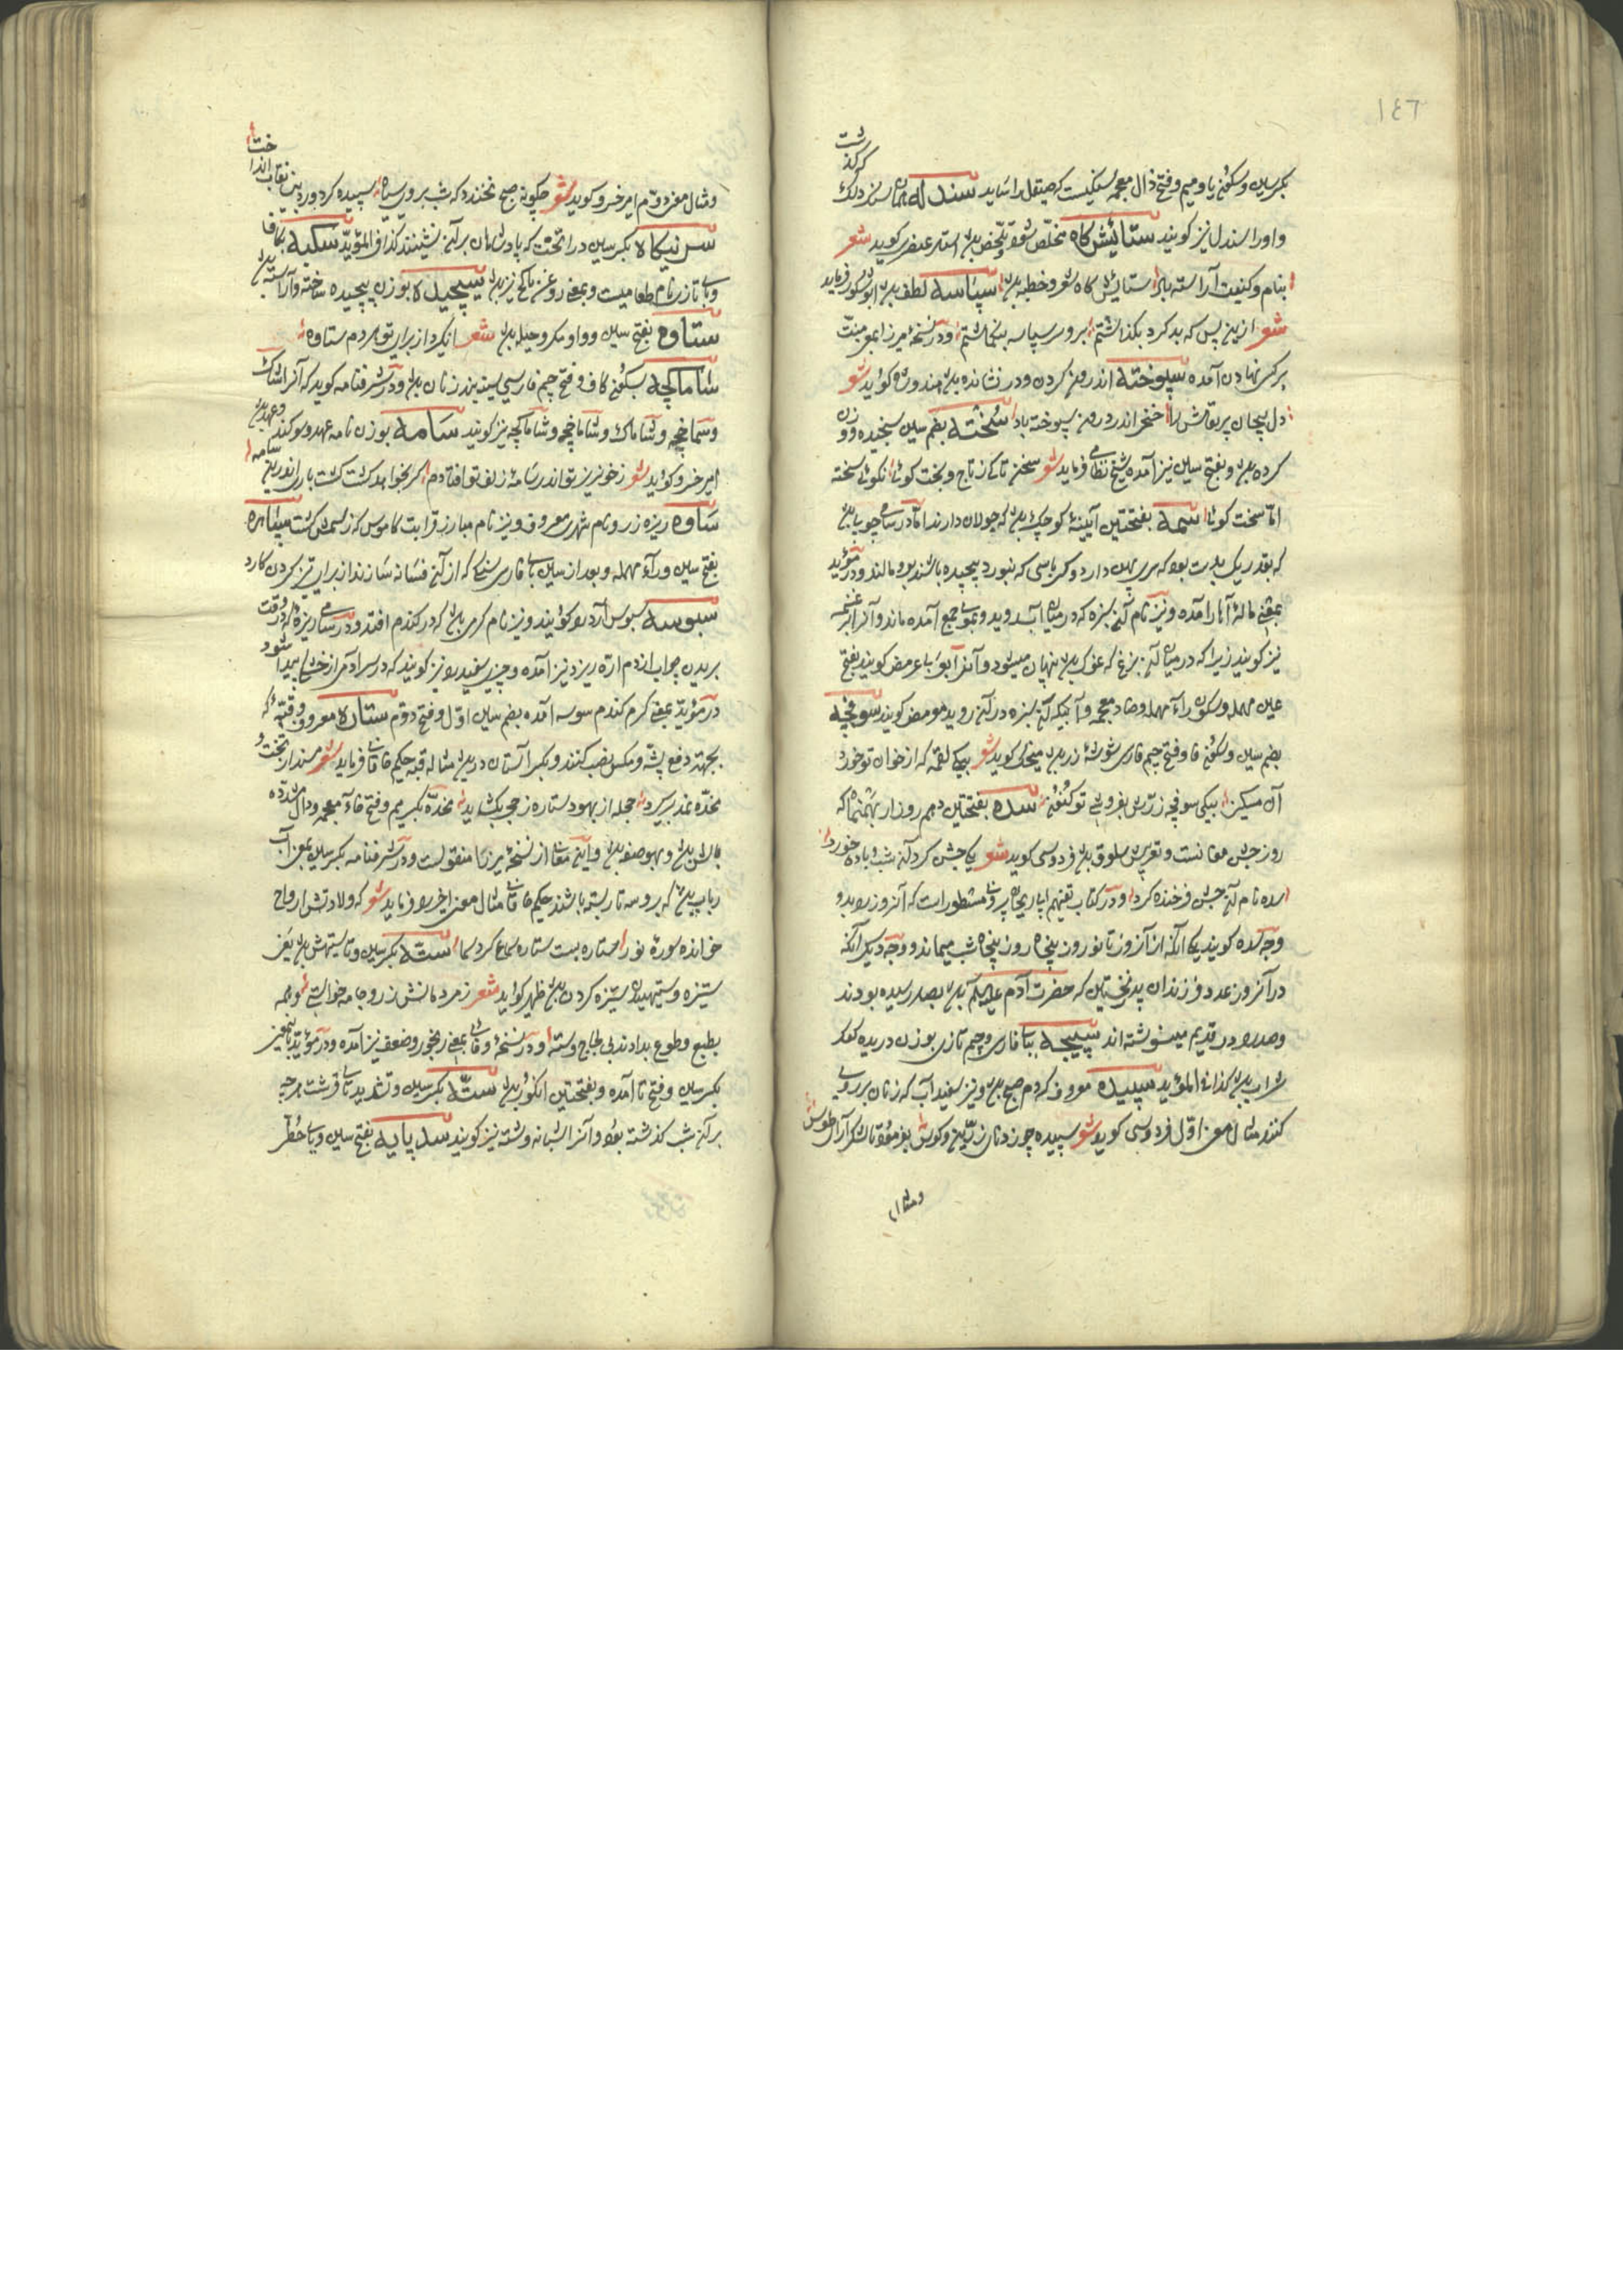 ١٤٦
بکسر سین و سکون یا و میم و فتح ذال معجمه سنگیست که صیقل را شاید سندله همان سندلک
که گذشت
و اورا سندل نیز گویند ستایش کاه مخلص شعر و تخلص استاد عنصری گوید شعر
بنام و کنیت آراسته باد ستایش کاه شعر و خطبه سپاسه لطف ابو شکور فرماید
شعر ازین پس که بد کرد بگذاشتم برو بر سپاسه بنگماشتم و در نسخه میرزا بمعنی منت
بر کسی نهادن آمده سپوخته اندرون کردن و در نشانده هندوشاه گوید شعر
دل بیچان پر نفاقش را خنجر اندر درون سپوخته باد سخته بضم سین سنجیده و وزن
کرده و بفتح سین نیز آمده شیخ نظامی فرماید شعر سخن تا کی ز تاج و تخت گوئی نگوئی سخته
اما سخت گوئی سمه بفتحتین آیینه کوچک که جولان دارند اما در سامی چوبی
که بقدر یک بدست بود که سری پهن دارد و کرباسی که بنورد پیچیده باشند بدو مالند و در مؤید
بمعنی ماله آهار آمده و نیز نام آن سبزه که در میان آب روید و بموی جمع آمده ماند و آنرا بزغسمه
نیز گویند زیرا که در میان آن بزغ که غوک پنهان میشود و آنرا بعربی عرمض گویند بفتح
عین مهمله و سکون راء مهمله و ضاد معجمه و آبی که آن سبزه در آن روید معرمض گویند سوفچه
بضم سین و سکون فا و فتح جیم فارسی شوشه زر منجیک گوید شعر بیکی لقمه که از خوان تو خورد
آن مسکین بیکی سوفچه زر پس بفروشی تو کنون سده بفتحتین دهم روز از بهمنماه که
روز جشن مغانست و بعربی سذق فردوسی گوید شعر یکی جشن کرد آن شب و باده خورد
سده نام آن جشن فرخنده کرد و در کتاب تفهیم ابو ریحان بیرونی مسطور است که آنروز را بدو
وجه سده گویند یکی آنکه از آنروز تا نوروز پنجاه روز پنجاه شب میماند و وجه دیگر آنکه
در آنروز عدد فرزندان پدر نخستین که حضرت آدم علیه السلام بصد رسیده بودند
و صد را در قدیم بسین نوشته اند سپیجه ببا فارسی و جیم تازی بوزن دریده
شراب کذا فی المؤید سپیده معروف که دم صبح و نیز سفید آب که زنان بر روی
کنند مثال معنی اول فردوسی گوید شعر سپیده چو زد نای رویین و کوس بفرمود تا لشکر آرای طوس
و مثال
و مثال معنی دوم امیر خسرو گوید شعر چگونه صبح نخندد که شب بروی سیاه سپیده کرد و درین نقاب انداخت
سرنیکاه بکسر سین و را تختی که پادشاهان بر آن نشینند کذا فی المؤید سکبه بکاف
و با تازی نام طعامیست و بمعنی روغن نیز سپچیده بوزن پیچیده ساخته و آراسته
ستاوه بفتح سین و واو مکر و حیله شعر
شاماکچه بسکون کاف و فتح جیم فارسی سینه بند زنان و در شرفنامه گوید که آنرا شاماک
و شماخچه و شاماک و شاماخچه و شاماکچه نیز گویند سامه بوزن نامه عهد و سوگند
امیر خسرو گوید شعر ز خونریز تو اندر سامه زلف تو افتادم گر بخواهد کشت گشت باری اندرین سامه
ساوه ریزه زر و نام شهری معروف و نیز نام مبارز قرابت کاموس که رستمش کشت
بفتح سین و راء مهمله و بعد از سین باء فارسی سنگی که از آن فسانه سازند از برای تیز کردن کارد
سبوسه سبوس آرد را گویند و نیز نام کرمی که در گندم افتد و در سامی ریزه که در وقت
بریدن چوب از دم اره ریزد نیز آمده و چیزی سفید را نیز گویند که در سر آدمی از خشکی پیدا شود
در مؤید بمعنی کرم گندم سوسه آمده بضم سین اول و فتح دوم ستاره معروف و قبه که
بجهت دفع پشه و مگس نصب کنند و بکسر آستان در مثال قبه حکیم خاقانی فرماید شعر مسند از تخت و
مخده نمد برگیرد حجله از بهو و ستاره ز حجر بگشاید مخده بکسر میم و فتح خاء معجمه و دال مشدده
بالش و بهو صفه و این معنی از نسخه میرزا منقولست و در شرفنامه بکسر سین بمعنی آن
رباب که برو سه تار بسته باشند حکیم خاقانی مثال معنی اخیر را فرماید شعر که ولادتش ارواح
خوانده سوره نور ستاره بست ستاره سماع کرد سما سته بکسر سین و تا ستیهش یعنی
ستیزه و ستیهیدن ستیزه کردن ظهیر گوید شعر ز مرد مانش زر و جامه خواست و همه
بطبع و طوع بدادند بی لجاج و سته و در نسخه وفائی بمعنی رنجور و ضعیف نیز آمده و در مؤید
بکسر سین و فتح تا آمده و بفتحتین انگور سته بکسر سین و تشدید تا قرشت هر چه
بر آن شب گذشته بود و آنرا شبانه و شته نیز گویند سدپایه بفتح سین و با حطی